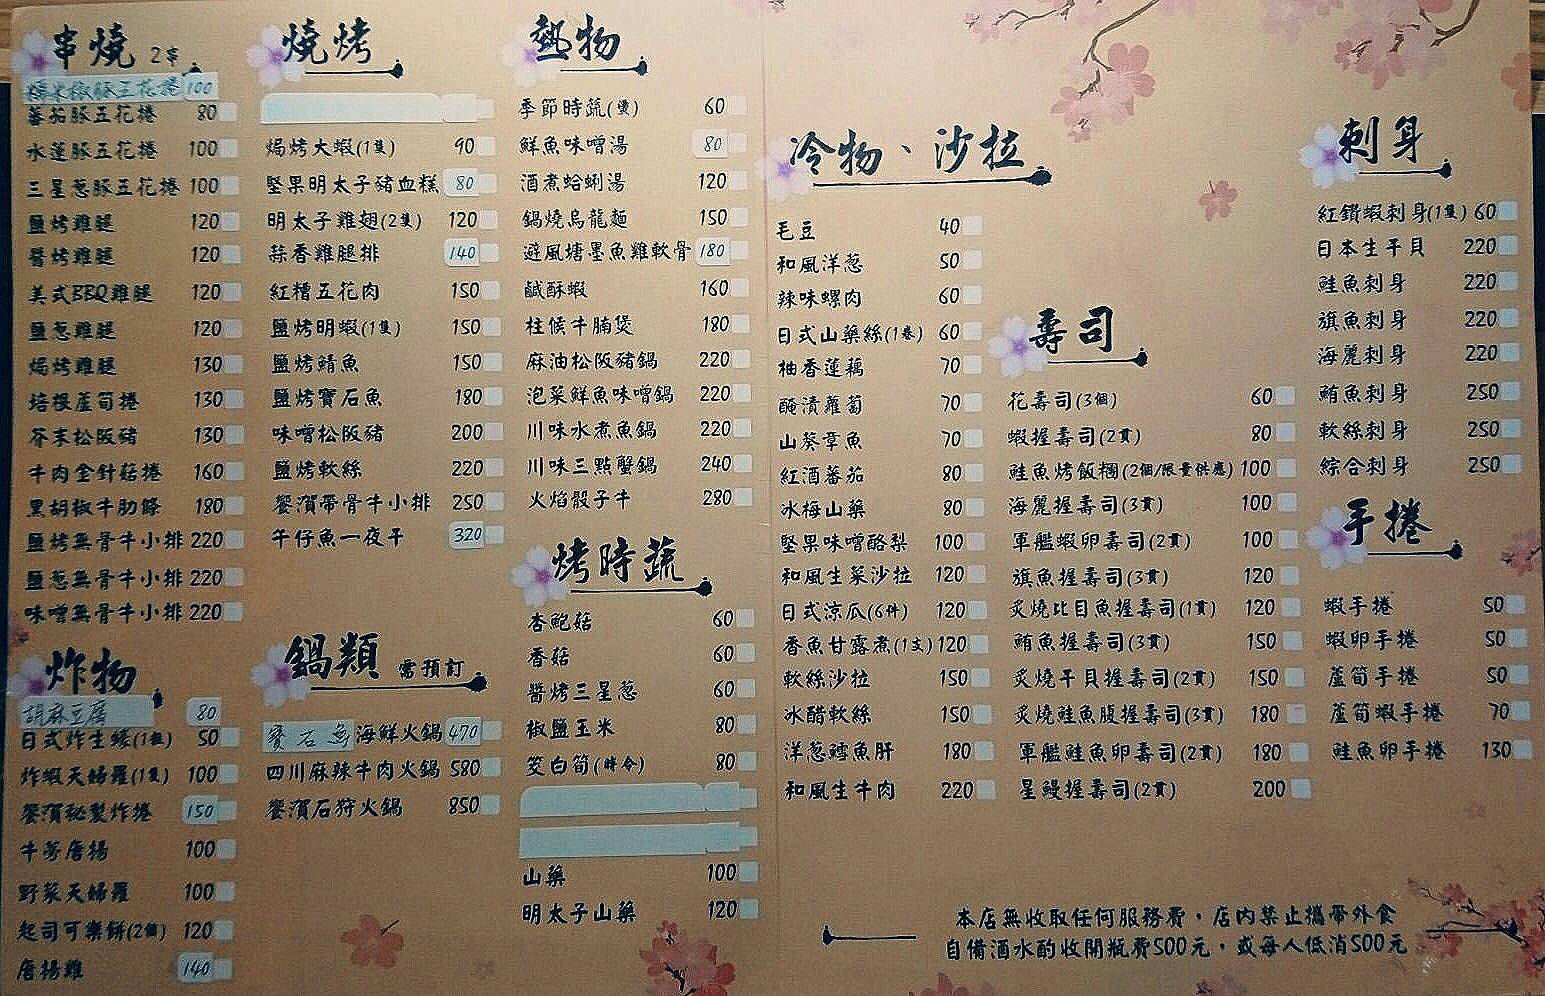 串燒 2串
糯米椒豚五花捲 100
蕃茄豚五花捲 80
水蓮豚五花捲 100
三星蔥豚五花捲 100
鹽烤雞腿 120
醬烤雞腿 120
美式BBQ雞腿 120
鹽蔥雞腿 120
焗烤雞腿 130
培根蘆筍捲 130
芥末松阪豬 130
牛肉金針菇捲 160
黑胡椒牛肋條 180
鹽烤無骨牛小排 220
鹽蔥無骨牛小排 220
味噌無骨牛小排 220
炸物
胡麻豆腐 80
日式炸生蠔(1顆) 50
炸蝦天婦羅(1隻) 100
饗濱秘製炸捲 150
牛蒡唐揚 100
野菜天婦羅 100
起司可樂餅(2個) 120
唐揚雞 140
燒烤
焗烤大蝦(1隻) 90
堅果明太子豬血糕 80
明太子雞翅(2隻) 120
蒜香雞腿排 140
紅糟五花肉 150
鹽烤明蝦(1隻) 150
鹽烤鯖魚 150
鹽烤寶石魚 180
味噌松阪豬 200
鹽烤軟絲 220
饗濱帶骨牛小排 250
午仔魚一夜干 320
鍋類 需預訂
寶石魚海鮮火鍋 470
四川麻辣牛肉火鍋 580
饗濱石狩火鍋 850
熱物
季節時蔬(燙) 60
鮮魚味噌湯 80
酒煮蛤蜊湯 120
鍋燒烏龍麵 150
避風塘墨魚雞軟骨 180
鹹酥蝦 160
柱侯牛腩煲 180
麻油松阪豬鍋 220
泡菜鮮魚味噌鍋 220
川味水煮魚鍋 220
川味三點蟹鍋 240
火焰骰子牛 280
烤時蔬
杏鮑菇 60
香菇 60
醬烤三星蔥 60
椒鹽玉米 80
筊白筍(時令) 80
山藥 100
明太子山藥 120
冷物、沙拉
毛豆 40
和風洋蔥 50
辣味螺肉 60
日式山藥絲(1卷) 60
柚香蓮藕 70
醃漬蘿蔔 70
山葵章魚 70
紅酒蕃茄 80
冰梅山藥 80
堅果味噌酪梨 100
和風生菜沙拉 120
日式涼瓜(6件) 120
香魚甘露煮(1支) 120
軟絲沙拉 150
冰醋軟絲 150
洋蔥鱈魚肝 180
和風生牛肉 220
壽司
花壽司(3個) 60
蝦握壽司(2貫) 80
鮭魚烤飯糰(2個/限量供應) 100
海麗握壽司(3貫) 100
軍艦蝦卵壽司(2貫) 100
旗魚握壽司(3貫) 120
炙燒比目魚握壽司(1貫) 120
鮪魚握壽司(3貫) 150
炙燒干貝握壽司(2貫) 150
炙燒鮭魚腹握壽司(3貫) 180
軍艦鮭魚卵壽司(2貫) 180
星鰻握壽司(2貫) 200
刺身
紅鑽蝦刺身(1隻) 60
日本生干貝 220
鮭魚刺身 220
旗魚刺身 220
海麗刺身 220
鮪魚刺身 250
軟絲刺身 250
綜合刺身 250
手捲
蝦手捲 50
蝦卵手捲 50
蘆筍手捲 50
蘆筍蝦手捲 70
鮭魚卵手捲 130
本店無收取任何服務費，店內禁止攜帶外食
自備酒水酌收開瓶費500元，或每人低消500元